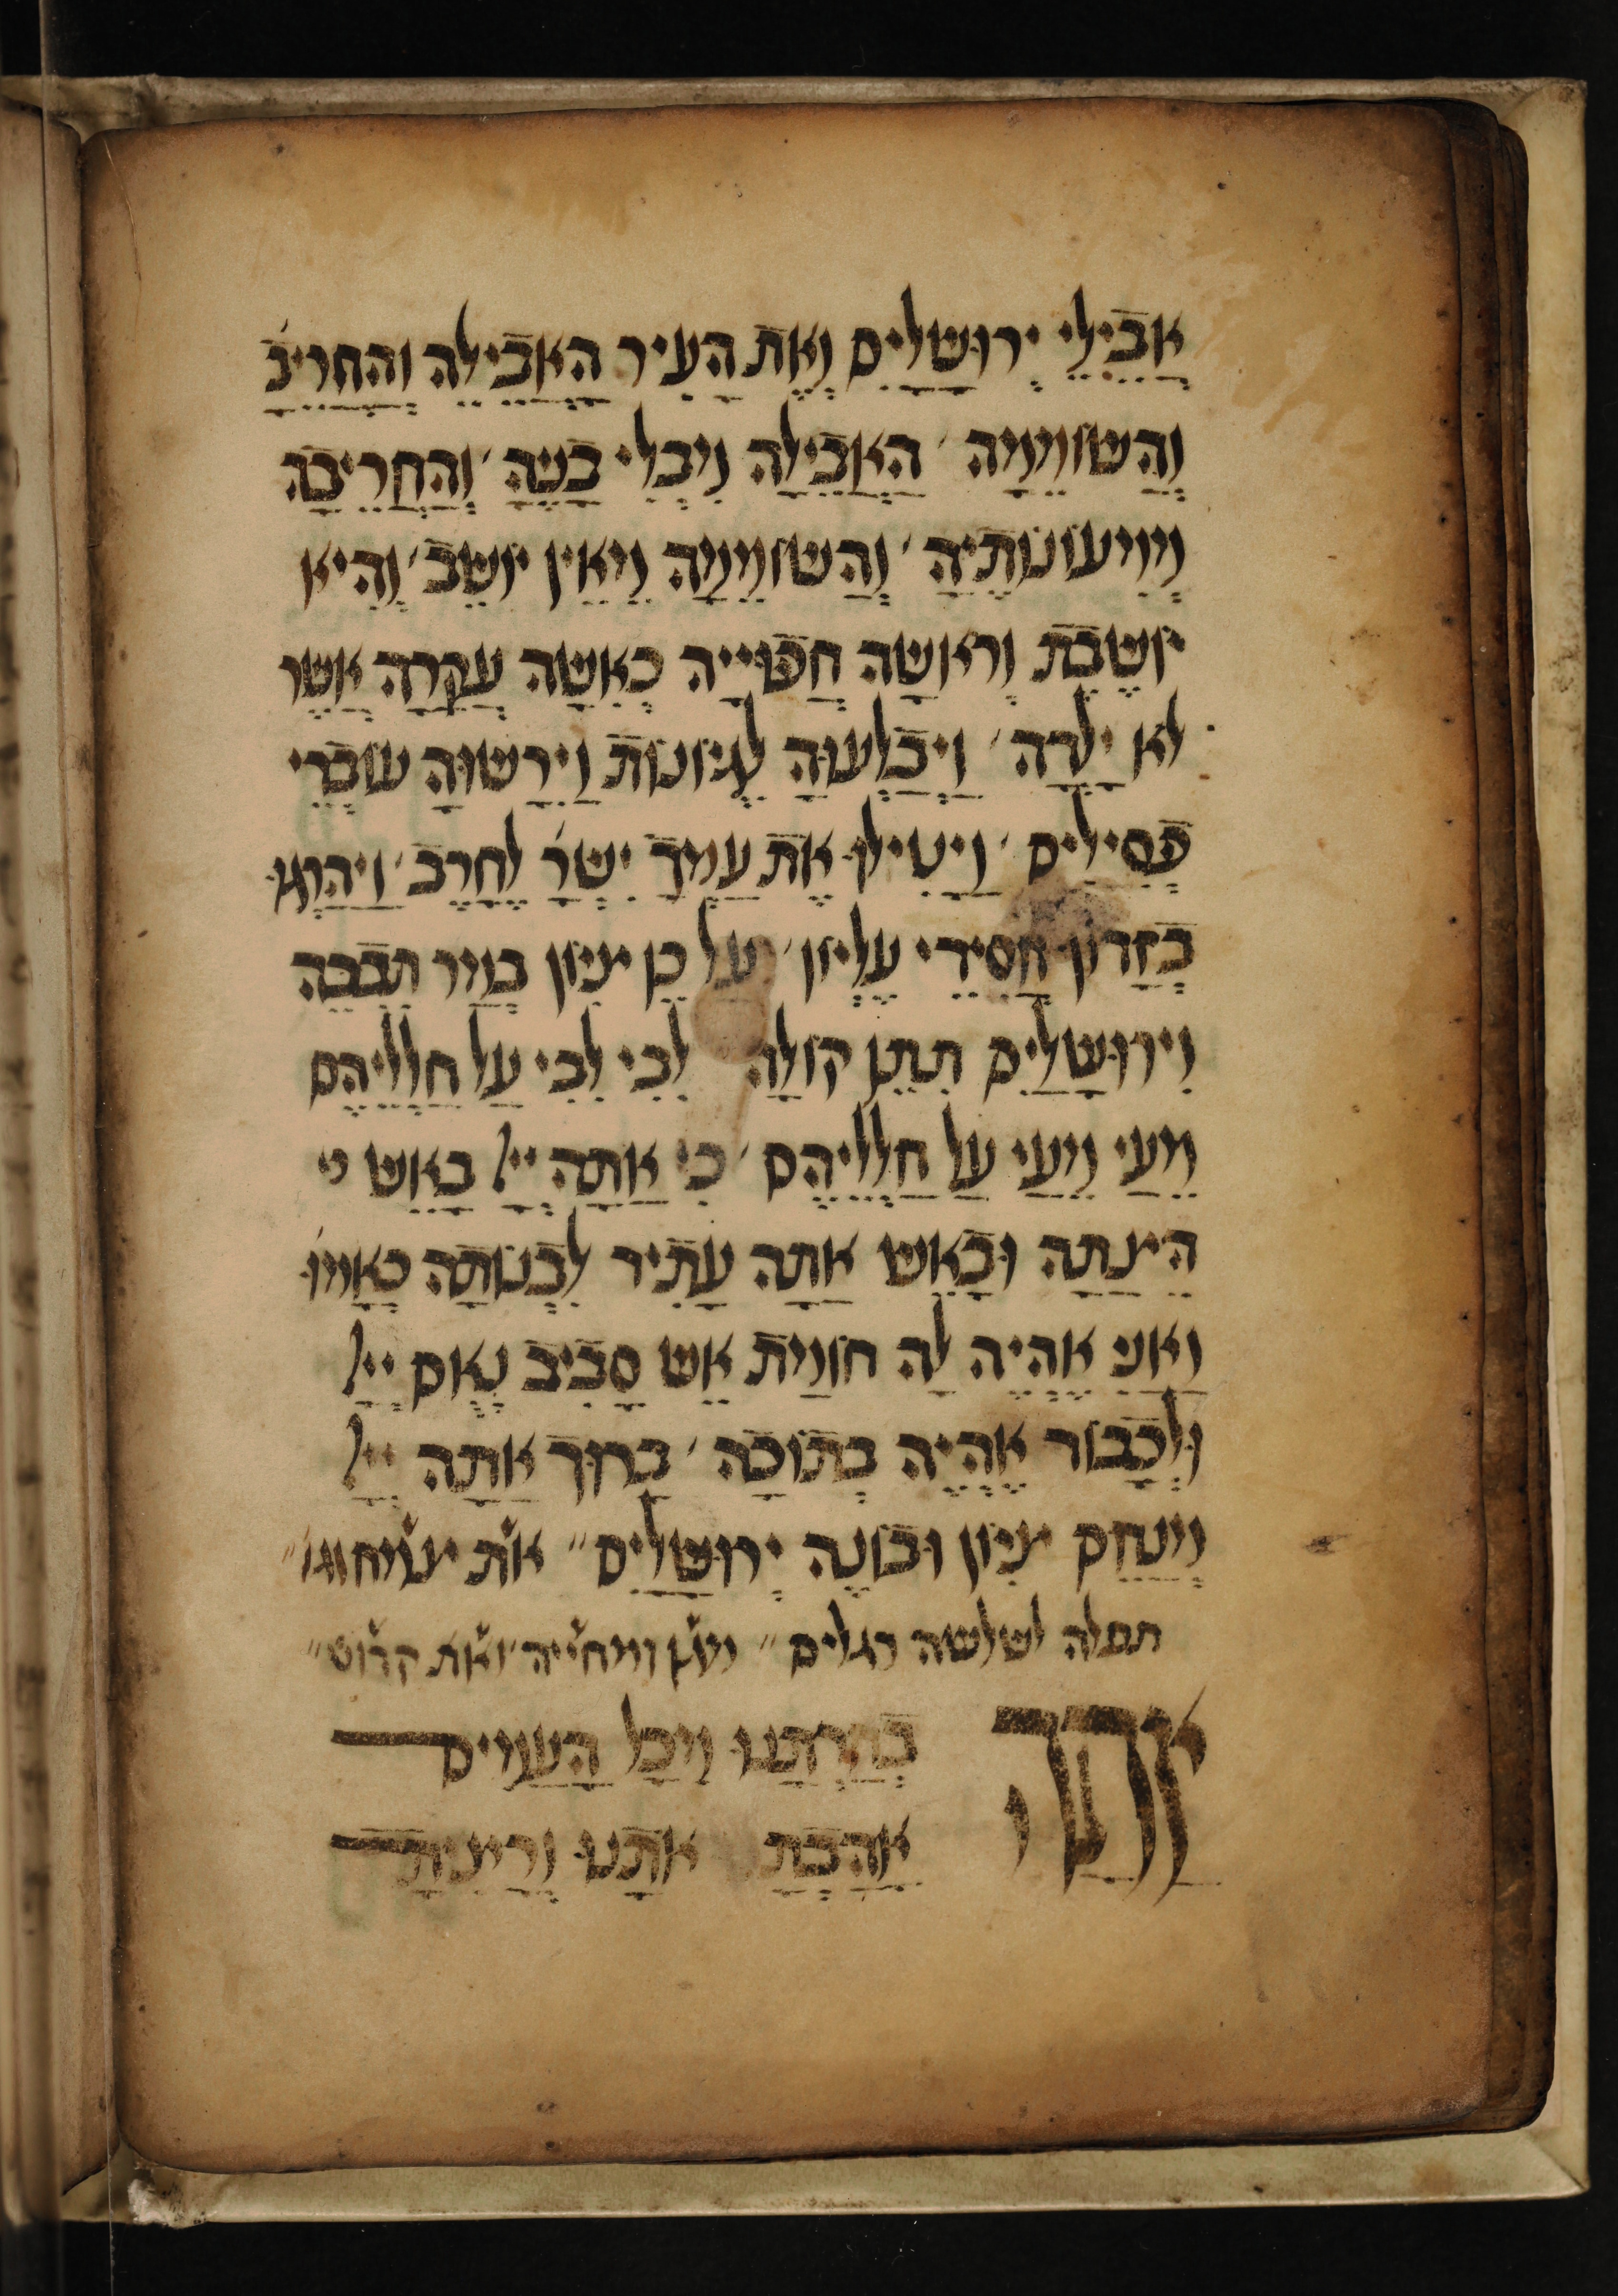 אֲבֵילֵי יְרוּשָׁלַיִם וְאֶת הָעִיר הָאֲבֵילָה וְהַחֲרֵיבָ
וְהַשּׁוֹמֵימָה ׳ הָאֲבֵילָה מִבְּלִי בָּנֶיהָ ׳ וְהַחֲרֵיבָה
מִמְּעוֹנוֹתֶיהָ ׳ וְהַשּׁוֹמֵימָה מֵאֵין יוֹשֵׁב ׳ וְהִיא
יוֹשֶׁבֶת וְרֹאשָׁהּ חֲפוּיָיה כְּאִשָּׁה עֲקָרָה אֲשֶׁר
לֹא יָלָדָה ׳ וַיְבַלְּעוּהָ לֶגְיוֹנוֹת וַיִּרָשׁוּהָ עוֹבְדֵי
פְּסִילִים ׳ וַיַּטִּילוּ אֶת עַמְּךָ יִשְׂרָ לֶחָרֶב ׳ וַיַּהַרְגוּ
בְּזָדוֹן חֲסִידֵי עֶלְיוֹן ׳ עַל כֵּן צִיּוֹן בְּמַר תִּבְכֶּה
וִירוּשָׁלַיִם תִּתֵּן קוֹלָהּ לִבִּי לִבִּי עַל חַלְלֵיהֶם
מֵעַי מֵעַי עַל חַלְלֵיהֶם ׳ כִּי אַתָּה יְיָ בָּאֵשׁ
הֵיצַתָּהּ וּבָאֵשׁ אַתָּה עָתִיד לִבְנוֹתָהּ כָּאָמוּ
וַאֲנִי אֶהְיֶה לָהּ חוֹמַת אֵשׁ סָבִיב נְאֻם יְיָ
וּלְכָבוֹד אֶהְיֶה בְּתוֹכָהּ ׳ בָּרוּךְ אַתָּה יְיָ
מְנַחֵם צִיּוֹן וּבוֹנֶה יְרוּשָׁלָיִם ״ את צמח וגו״
תפלה לשלשה רגלים ״ מגן ומחייה ׳ ואת קדוש ״
אַתָּה בְּחַרְתָּנוּ מִכָּל הָעַמִּים
אָהַבְתָּ אוֹתָנוּ וְרָצִיתָ